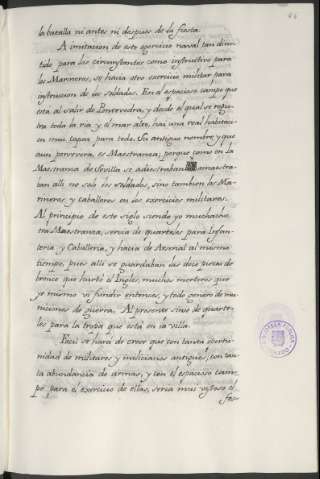 la batalla ni antes ni despues de la fiesta.
A imitacion de este exercicio naval tan divertido
para los circunstantes como instructivo para
los Marineros, se hacia otro exercicio militar para
instruccion de los soldados. En el espacioso campo que
está al salir de Pontevedra, y desde el qual se registra
toda la ria y el mar alto, hai una real habitacion
mui capaz para todo. Su antiguo nombre, y que
aun persevera, es Maestranza; porque como en la
Maestranza de Sevilla se adiestraban, amaestraban
alli no solo los soldados, sino tambien los Marineros
y caballeros en los exercicios militares.
Al principio de este siglo siendo yo muchacho,
la Maestranza, servia de quarteles para Infanteria
y Caballeria, y hacia de Arsenal al mismo
tiempo, pues alli se guardaban las dos piezas de
bronce que hurtó el Ingles, muchos morteros que
yo mismo vi fundir entonces; y todo genero de municiones
de guerra. Al presente sirve de quarteles
para la tropa que está en la villa.
Facil se hará de creer que con tanta
de militares y milicianos antiguos, con tanta
abundancia de armas, y con el espacioso campo
para el exercicio de ellas, seria mui vistoso el